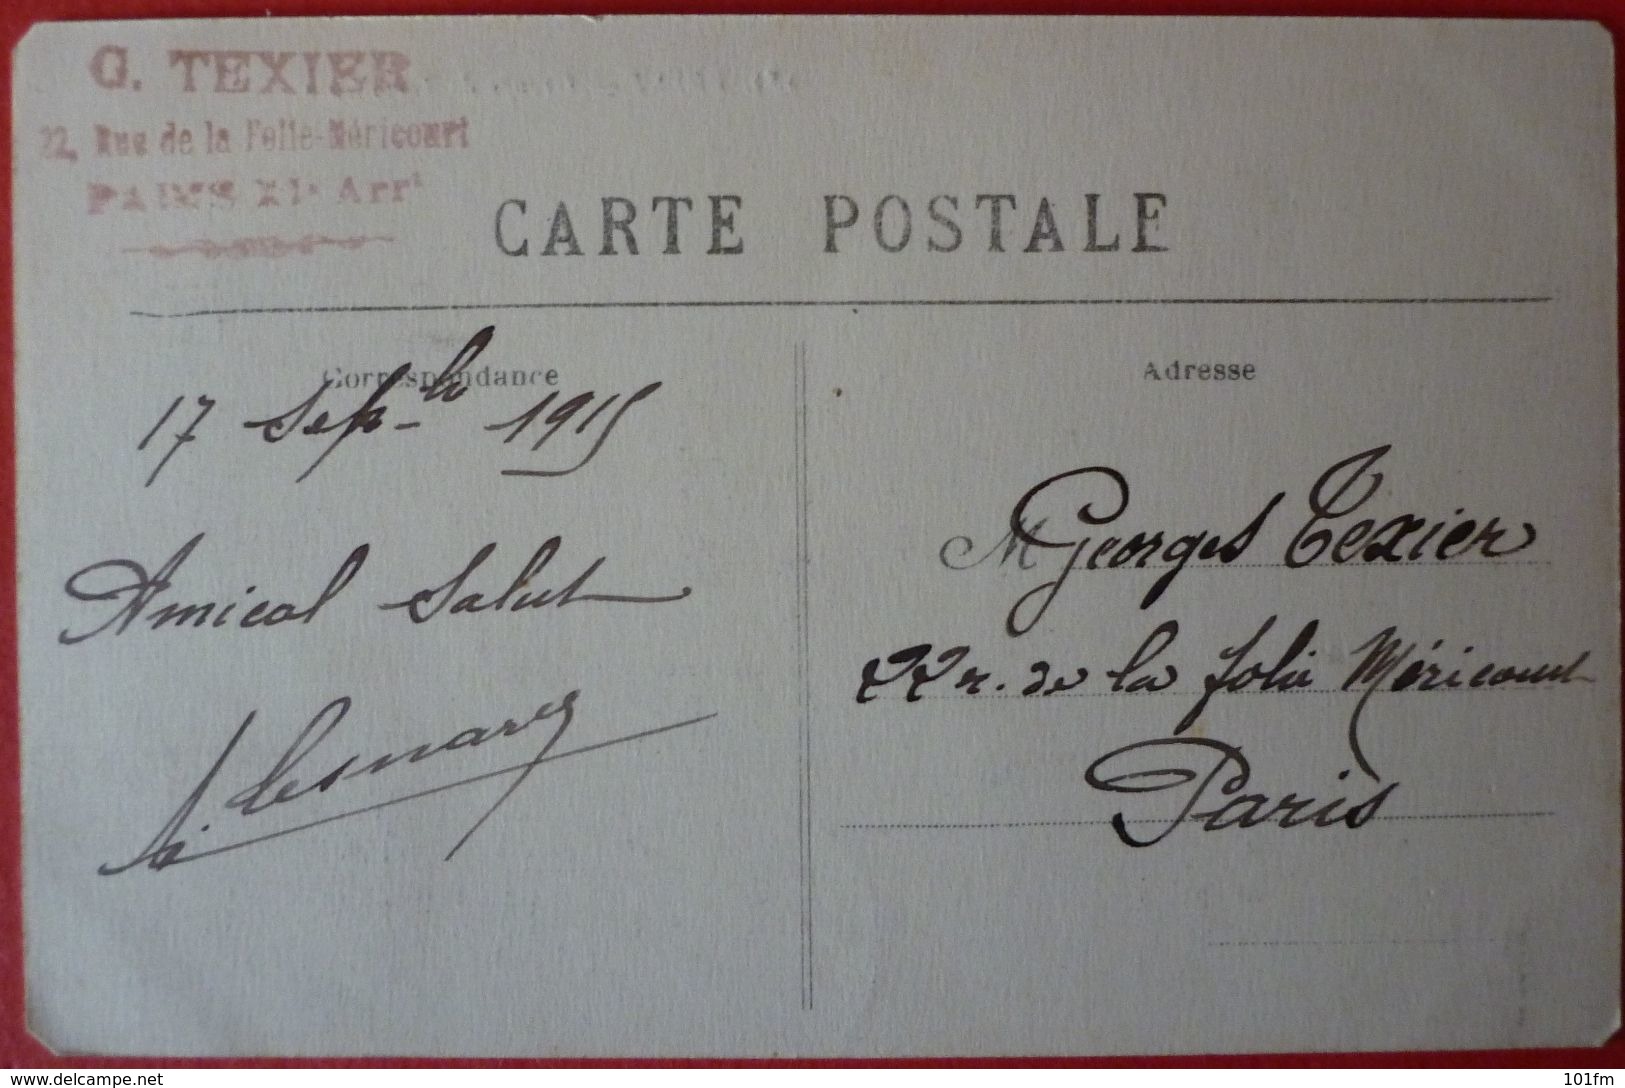 G. TEXIER
22, Rue de la Folie-Méricourt
PARIS XIe Arrt
CARTE POSTALE
Correspondance
17 Sepbre 1915
Amical Salut
Adresse
M Georges Texier
22 r. de la folie Méricourt
Paris
http://www.delcampe.net
101fm